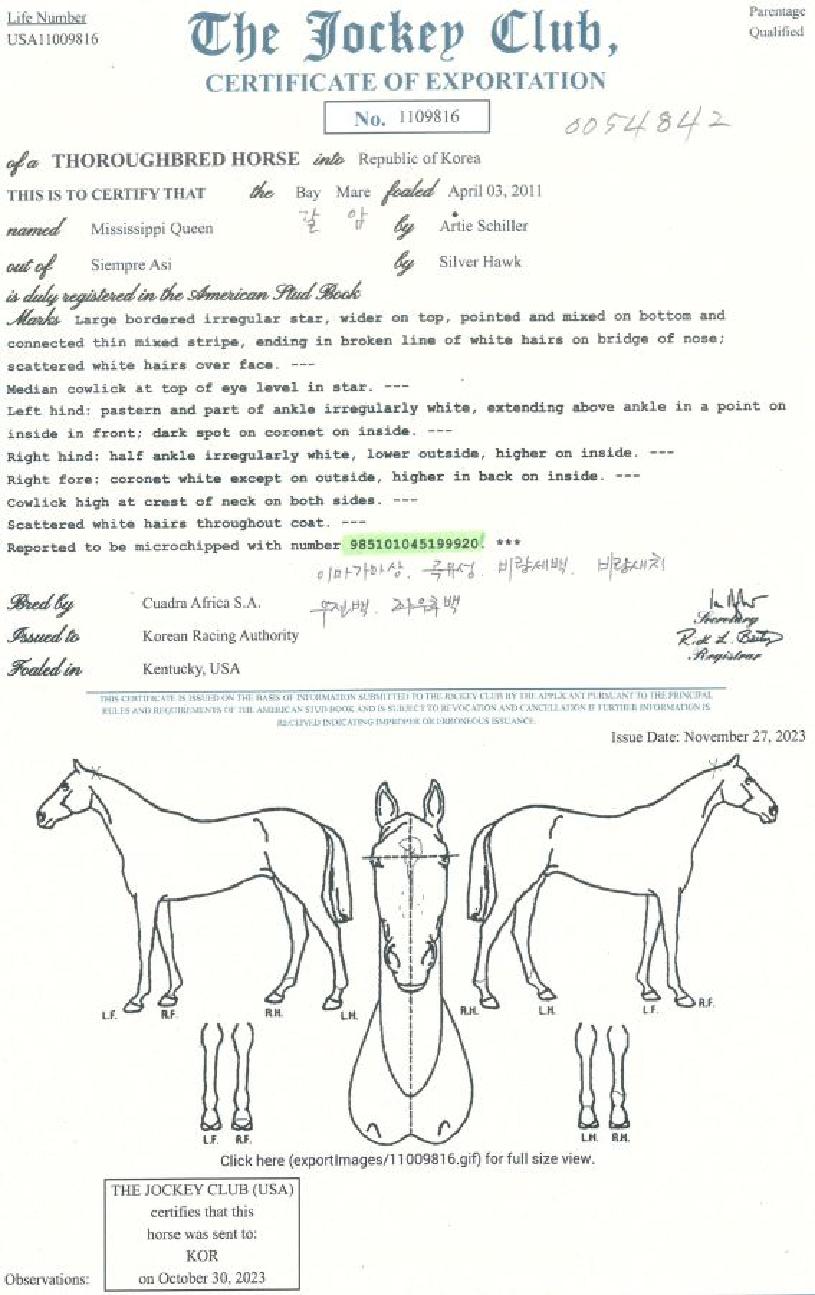 Life Number
USA11009816
Parentage
Qualified
The Jockey Club,
CERTIFICATE OF EXPORTATION
No. 1109816
0054842
of a THOROUGHBRED HORSE into Republic of Korea
THIS IS TO CERTIFY THAT the Bay Mare foaled April 03, 2011
갈 암
named Mississippi Queen by Artie Schiller
out of Siempre Asi by Silver Hawk
is duly registered in the American Stud Book
Marks Large bordered irregular star, wider on top, pointed and mixed on bottom and
connected thin mixed stripe, ending in broken line of white hairs on bridge of nose;
scattered white hairs over face. ---
Median cowlick at top of eye level in star. ---
Left hind: pastern and part of ankle irregularly white, extending above ankle in a point on
inside in front; dark spot on coronet on inside. ---
Right hind: half ankle irregularly white, lower outside, higher on inside. ---
Right fore: coronet white except on outside, higher in back on inside. ---
Cowlick high at crest of neck on both sides. ---
Scattered white hairs throughout coat. ---
Reported to be microchipped with number 985101045199920. ***
이마가마상. 비량세백.
Bred by Cuadra Africa S.A.
Issued to Korean Racing Authority
Foaled in Kentucky, USA
Secretary
Registrar
THIS CERTIFICATE IS ISSUED ON THE BASIS OF INFORMATION SUBMITTED TO THE JOCKEY CLUB BY THE APPLICANT PURSUANT TO THE PRINCIPAL
RULES AND REQUIREMENTS OF THE AMERICAN STUD BOOK AND IS SUBJECT TO REVOCATION AND CANCELLATION IF FURTHER INFORMATION IS
RECEIVED INDICATING IMPROPER OR ERRONEOUS ISSUANCE.
Issue Date: November 27, 2023
L.F. R.F. R.H. L.H. R.H. L.H. L.F. R.F.
L.F. R.F. L.H. R.H.
Click here (exportimages/11009816.gif) for full size view.
THE JOCKEY CLUB (USA)
certifies that this
horse was sent to:
KOR
on October 30, 2023
Observations: